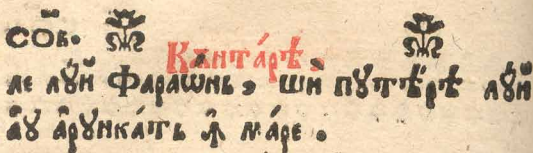 со҃в.
Кѫнта́рѣ,
ле лꙋ́й Фараѡ́нь, шѝ пꙋтѣ́рѣ лꙋ́й
а҆́ꙋ а҆рꙋнка́ть ꙟ҆ ма́ре.